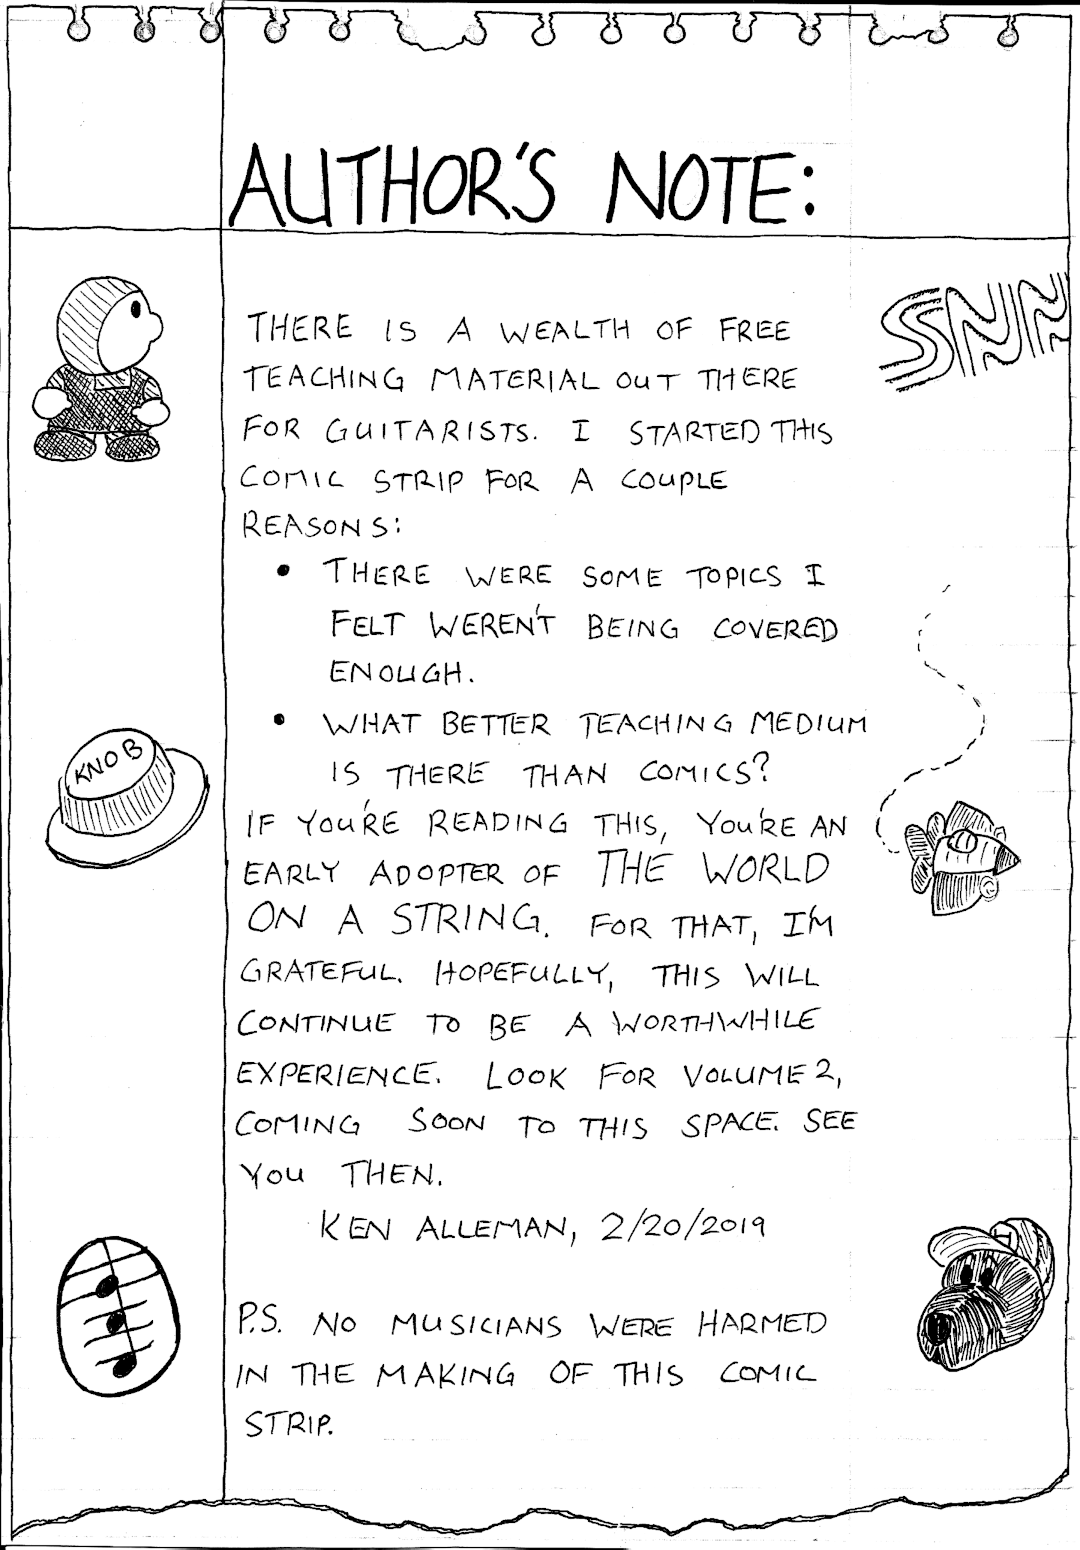 AUTHOR'S NOTE:
THERE IS A WEALTH OF FREE
TEACHING MATERIAL OUT THERE
FOR GUITARISTS. I STARTED THIS
COMIC STRIP FOR A COUPLE
REASONS:
• THERE WERE SOME TOPICS I
FELT WEREN'T BEING COVERED
ENOUGH.
• WHAT BETTER TEACHING MEDIUM
IS THERE THAN COMICS?
IF YOU'RE READING THIS, YOU'RE AN
EARLY ADOPTER OF THE WORLD
ON A STRING. FOR THAT, I'M
GRATEFUL. HOPEFULLY, THIS WILL
CONTINUE TO BE A WORTHWHILE
EXPERIENCE. LOOK FOR VOLUME 2,
COMING SOON TO THIS SPACE. SEE
YOU THEN.
KEN ALLEMAN, 2/20/2019
P.S. NO MUSICIANS WERE HARMED
IN THE MAKING OF THIS COMIC
STRIP.
SNN
KNOB
H